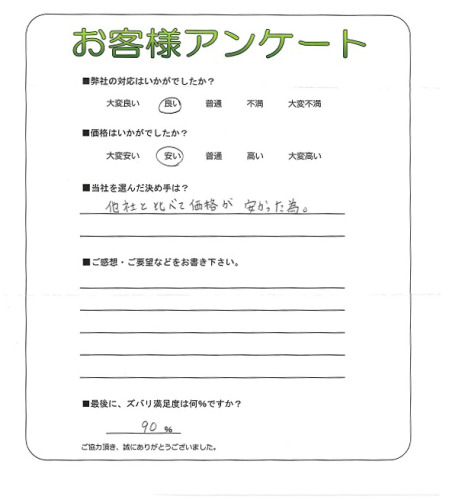 お客様アンケート
■弊社の対応はいかがでしたか？
大変良い 良い 普通 不満 大変不満
■価格はいかがでしたか？
大変安い 安い 普通 高い 大変高い
■当社を選んだ決め手は？
他社と比べて価格が安かった為。
■ご感想・ご要望などをお書き下さい。
■最後に、ズバリ満足度は何％ですか？
90 ％
ご協力頂き、誠にありがとうございました。